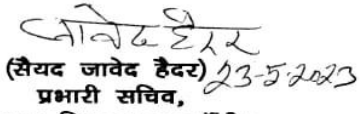 जावेद हैदर
(सैयद जावेद हैदर) 23-5-2023
प्रभारी सचिव,